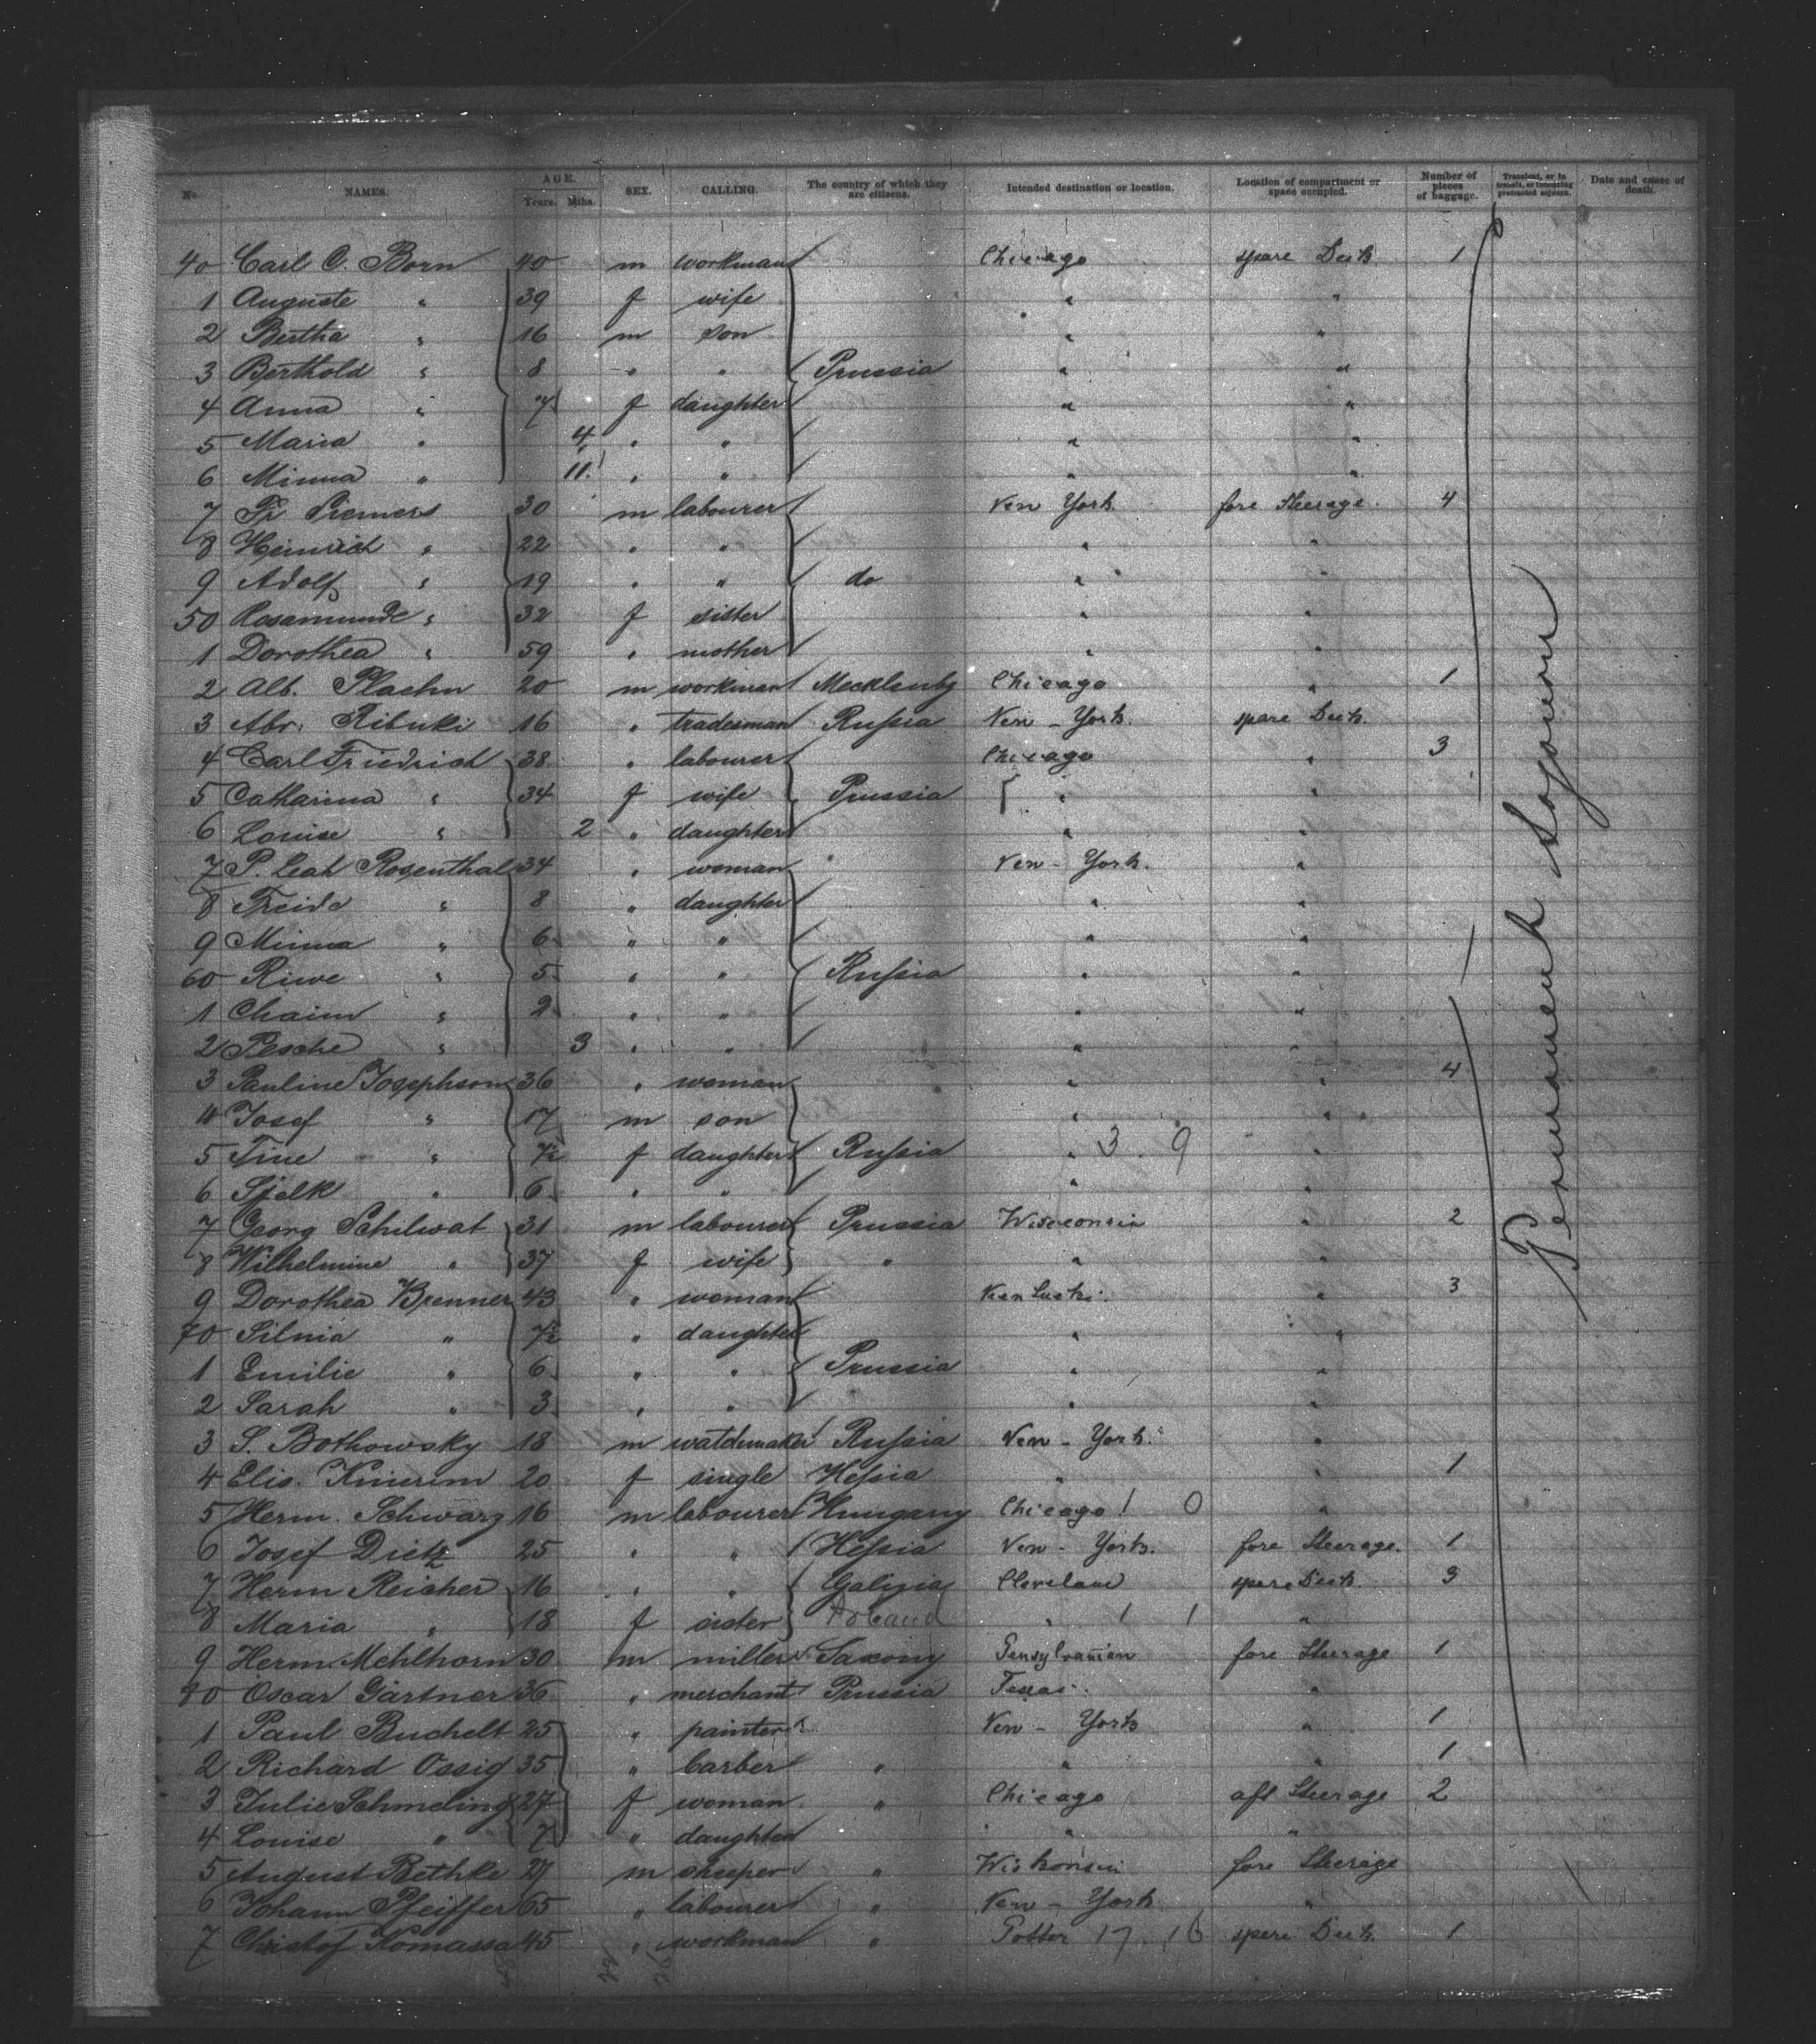 No. NAMES. AGE. Years. Mths. SEX. CALLING. The country of which they are citizens. Intended destination or location. Location of compartment or space occupied. Number of pieces of baggage. Transient, or in transit, or intending protracted sojourn. Date and cause of death.
40 Carl C. Born 40 m workman Chicago spare Deck 1
1 Auguste " 39 f wife " "
2 Bertha " 16 m son " "
3 Berthold " 8 " " Prussia " "
4 Anna " 7 f daughter " "
5 Maria " 4 " " " "
6 Minna " 11 " " " "
7 Fr Siemers 30 m labourer New York fore Steerage 4
8 Heinrich " 22 " " " "
9 Adolf " 19 " " do " "
50 Rosamunde " 32 f sister " "
1 Dorothea " 59 " mother " "
2 Alb. Plaehn 20 m workman Mecklenbg Chicago " 1
3 Abr. Ribuki 16 " tradesman Russia New-York. spare Deck
4 Carl Friedrich 38 " labourer Chicago " 3
5 Catharina " 34 f wife Prussia " "
6 Louise " 2 " daughter " "
7 P. Leah Rosenthal 34 " woman New-York. "
8 Freide " 8 " daughter " "
9 Minna " 6 " " " "
60 Riwe " 5 " " Russia " "
1 Chaim " 2 " " " "
2 Pesche " 3 " " " "
3 Pauline Josephson 36 " woman " " 4
4 Josef " 17 m son " "
5 Tine " 7½ f daughter Russia " 3. 9 "
6 Sjelk " 6 " " " "
7 Georg Schilwat 31 m labourer Prussia Wisconsin " 2
8 Wilhelmine " 37 f wife " " "
9 Dorothea Brenner 43 " woman " 3
70 Silnia " 7½ " daughter " "
1 Emilie " 6 " " Prussia " "
2 Sarah " 3 " " " "
3 S. Bothowsky 18 m watchmaker Russia New-York. "
4 Elis. Knierim 20 f single Hessia " " 1
5 Herm. Schwarz 16 m labourer Hungary Chicago 1 0 "
6 Josef Dietz 25 " " Hessia New-York. fore Steerage. 1
7 Herm Reicher 16 " " Galizia Cleveland spare Deck. 3
8 Maria " 18 f sister Poland " 1 1 "
9 Herm. Mehlhorn 30 m miller Saxony Pensylvanien fore Steerage 1
80 Oscar Gärtner 36 " merchant Prussia Texas. "
1 Paul Buchelt 25 " painter New-York " 1
2 Richard Ossig 35 " barber " " " 1
3 Julie Schmeling 27 f woman " Chicago aft Steerage 2
4 Louise " 7 " daughter " "
5 August Bethke 27 m " Wiskonsin fore Steerage
6 Johann Pfeiffer 65 " labourer " New-York "
7 Christof Komassa 45 " workman " Potter 17. 16 spare Deck. 1
Permanent Sojourn